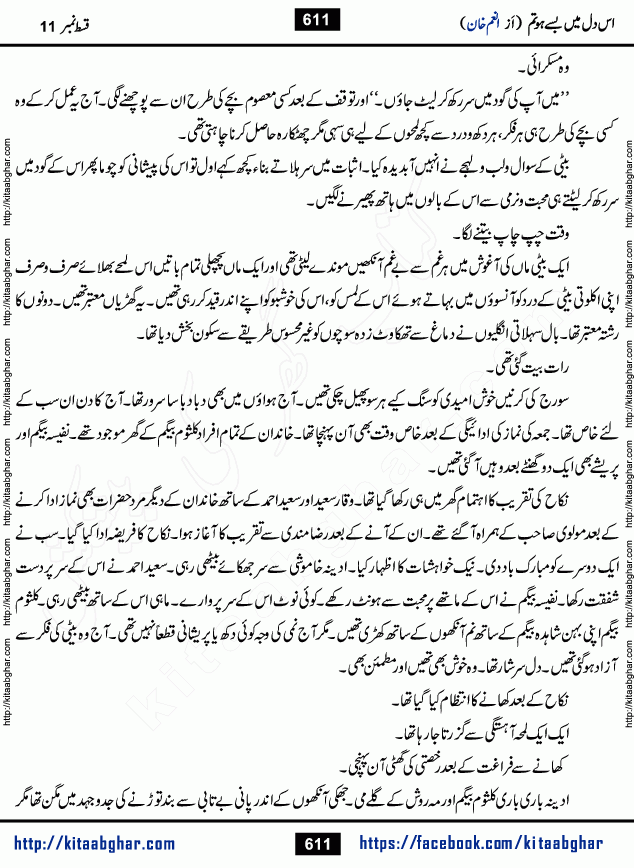 اس دل میں بسے ہو تم (از انعم خان)
611
قسط نمبر 11
وہ مسکرائی۔
’’میں آپ کی گود میں سر رکھ کر لیٹ جاؤں۔‘‘ اور توقف کے بعد کسی معصوم بچے کی طرح ان سے پوچھنے لگی۔ آج یہ عمل کر کے وہ
کسی بچے کی طرح ہی ہر فکر، ہر دکھ و درد سے کچھ لمحوں کے لیے ہی سہی مگر چھٹکارہ حاصل کرنا چاہتی تھی۔
بیٹی کے سوال و لب و لہجے نے انہیں آبدیدہ کیا۔ اثبات میں سر ہلاتے بناء کچھ کہے اول تو اس کی پیشانی کو چوما پھر اس کے گود میں
سر رکھ کر لیٹتے ہی محبت و نرمی سے اس کے بالوں میں ہاتھ پھیرنے لگیں۔
وقت چپ چاپ بیتنے لگا۔
ایک بیٹی ماں کی آغوش میں ہر غم سے بے غم آنکھیں موندے لیٹی تھی اور ایک ماں پچھلی تمام باتیں اس لمحے بھلائے صرف و صرف
اپنی اکلوتی بیٹی کے درد کو آنسوؤں میں بہاتے ہوئے اس کے لمس کو، اس کی خوشبو کو اپنے اندر قید کر رہی تھیں۔ یہ گھڑیاں معتبر تھیں۔ دونوں کا
رشتہ معتبر تھا۔ بال سہلاتی انگلیوں نے دماغ سے تھکاوٹ زدہ سوچوں کو غیر محسوس طریقے سے سکون بخش دیا تھا۔
رات بیت گئی تھی۔
سورج کی کرنیں خوش امیدی کو سنگ کیے ہر سو پھیل چکی تھیں۔ آج ہواؤں میں بھی دبا دبا سا سرور تھا۔ آج کا دن ان سب کے
لئے خاص تھا۔ جمعہ کی نماز کی ادائیگی کے بعد خاص وقت بھی آن پہنچا تھا۔ خاندان کے تمام افراد کلثوم بیگم کے گھر موجود تھے۔ نفیسہ بیگم اور
پریشے بھی ایک دو گھنٹے بعد وہیں آ گئی تھیں۔
نکاح کی تقریب کا اہتمام گھر میں ہی رکھا گیا تھا۔ وقار سعید اور سعید احمد کے ساتھ خاندان کے دیگر مرد حضرات بھی نماز ادا کرنے
کے بعد مولوی صاحب کے ہمراہ آ گئے تھے۔ ان کے آنے کے بعد رضا مندی سے تقریب کا آغاز ہوا۔ نکاح کا فریضہ ادا کیا گیا۔ سب نے
ایک دوسرے کو مبارک باد دی۔ نیک خواہشات کا اظہار کیا۔ ادینہ خاموشی سے سر جھکائے بیٹھی رہی۔ سعید احمد نے اس کے سر پر دست
شفقت رکھا۔ نفیسہ بیگم نے اس کے ماتھے پر محبت سے ہونٹ رکھے۔ کوئی نوٹ اس کے سر پر وارے۔ ماہی اس کے ساتھ بیٹھی رہی۔ کلثوم
بیگم اپنی بہن شاہدہ بیگم کے ساتھ نم آنکھوں کے ساتھ کھڑی تھیں۔ مگر آج نمی کی وجہ کوئی دکھ یا پریشانی قطعاً نہیں تھی۔ آج وہ بیٹی کی فکر سے
آزاد ہو گئی تھیں۔ دل سرشار تھا۔ وہ خوش بھی تھیں اور مطمئن بھی۔
نکاح کے بعد کھانے کا انتظام کیا گیا تھا۔
ایک ایک لمحہ آہستگی سے گزرتا جا رہا تھا۔
کھانے سے فراغت کے بعد رخصتی کی گھڑی آن پہنچی۔
ادینہ باری باری کلثوم بیگم اور مہ روش کے گلے ملی۔ جھکی آنکھوں کے اندر پانی بے تابی سے بند توڑنے کی جدوجہد میں مگن تھا مگر
http://kitaabghar.com
611
https://facebook.com/kitaabghar
http://kitaabghar.com
http://kitaabghar.com
http://kitaabghar.com
http://kitaabghar.com
http://kitaabghar.com
http://kitaabghar.com
http://kitaabghar.com
http://kitaabghar.com
http://kitaabghar.com
http://kitaabghar.com
http://kitaabghar.com
http://kitaabghar.com